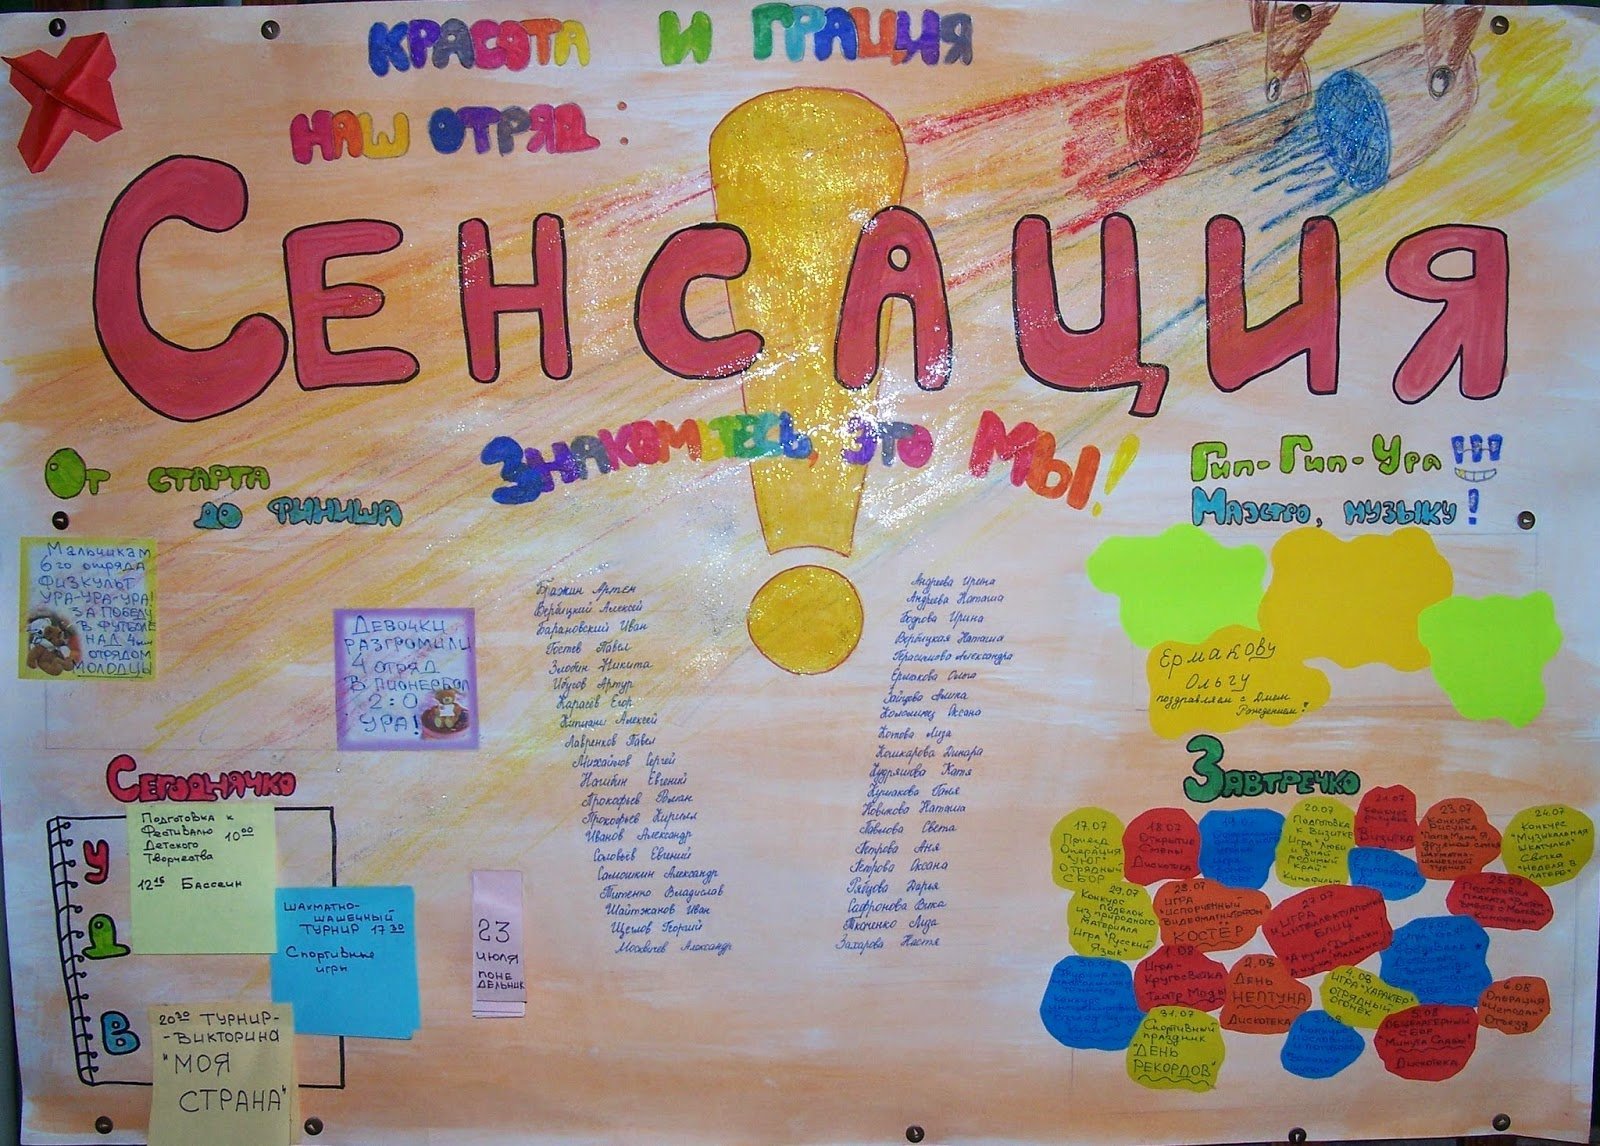 КРАСОТА И ГРАЦИЯ
НАШ ОТРЯД:
СЕНСАЦИЯ
ЗНАКОМЬТЕСЬ, ЭТО МЫ!
ОТ СТАРТА
ДО ФИНИША
Мальчикам
6го отряда
ФИЗКУЛЬТ
УРА-УРА-УРА!
ЗА ПОБЕДУ
В ФУТБОЛЕ
НАД 4ым
ОТРЯДОМ
МОЛОДЦЫ
ДЕВОЧКИ
РАЗГРОМИЛИ
4 ОТРЯД
В ПИОНЕРБОЛ
2:0
УРА!
Бражин Артем
Вербицкий Алексей
Барановский Иван
Гостев Павел
Злобин Никита
Ибусов Артур
Карасёв Егор
Алексей
Лавренков Павел
Михайлов Сергей
Евгений
Прокофьев Роман
Прокофьев Кирилл
Иванов Александр
Соловьёв Евгений
Самошкин Александр
Титенко Владислав
Шайтжанов Иван
Щеглов Георгий
Москвичев Александр
Андреева Ирина
Андреева Наташа
Бодрова Ирина
Вербицкая Наташа
Герасимова Александра
Ермакова Ольга
Зайцева Алина
Коломиец Оксана
Котова Лиза
Кошкарова Динара
Кудряшова Катя
Кушакова Юлия
Новикова Наташа
Павлова Света
Петрова Аня
Петрова Оксана
Рябцова Дарья
Сафронова Вика
Ткаченко Лиза
Захарова Настя
ГИП-ГИП-УРА!!!
МАЭСТРО, МУЗЫКУ!
ЕРМАКОВУ
ОЛЬГУ
поздравляем с Днем
Рождением!
СЕГОДНЯЧКО
У
Д
В
Подготовка к
Фестивалю 10 00
Детского
Творчества
12 15 Бассейн
ШАХМАТНО-
ШАШЕЧНЫЙ
ТУРНИР 17 30
Спортивные
игры
20 30 ТУРНИР-
-ВИКТОРИНА
"МОЯ
СТРАНА"
23
ИЮЛЯ
ПОНЕ
ДЕЛЬНИК
ЗАВТРЕЧКО
17.07
Приезд
Операция
"УЮТ"
Отрядный
СБОР
18.07
Открытие
Смены
Дискотека
20.07
Подготовка
к Визитке
Игра "Люби
и знай
родимый
край"
Кинофильм
21.07
Конкурс
рисунка
Визитка
23.07
Конкурс
Рисунка
"Папа, Мама, Я,
дружная семья"
Шахматно-
шашечный
турнир
24.07
Конкурс
"Музыкальная
шкатулка"
Свечка
"Неделя в
лагере"
25.07
Подготовка
Кинофильм
27.07
ИГРА
Интеллектуальный
БЛИЦ
28.07
ИГРА
"ИСПОРЧЕННЫЙ
ВИДЕОМАГНИТОФОН"
КОСТЁР
29.07
Конкурс
поделок
из природного
материала
Игра "Русский
Язык"
31.07
Спортивный
праздник
"ДЕНЬ
РЕКОРДОВ"
1.08
Игра-
Кругосветка
Театр Моды
2.08
ДЕНЬ
НЕПТУНА
Дискотека
4.08
ИГРА "ХАРАКТЕР"
ОТРЯДНЫЙ
Огонёк
5.08
Общелагерный
СБОР
"Минута Славы"
Дискотека
6.08
Операция
"Чемодан"
Отъезд